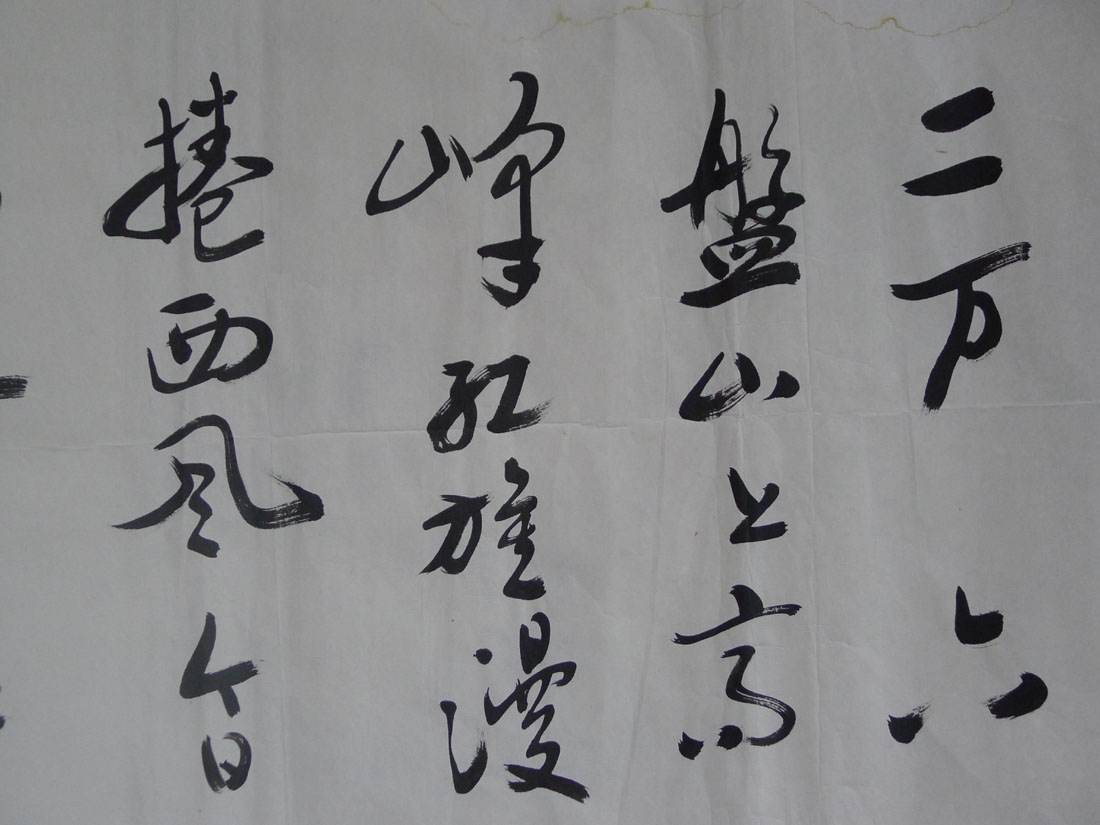 二万六
盤山上高
峰红旗漫
捲西风今日